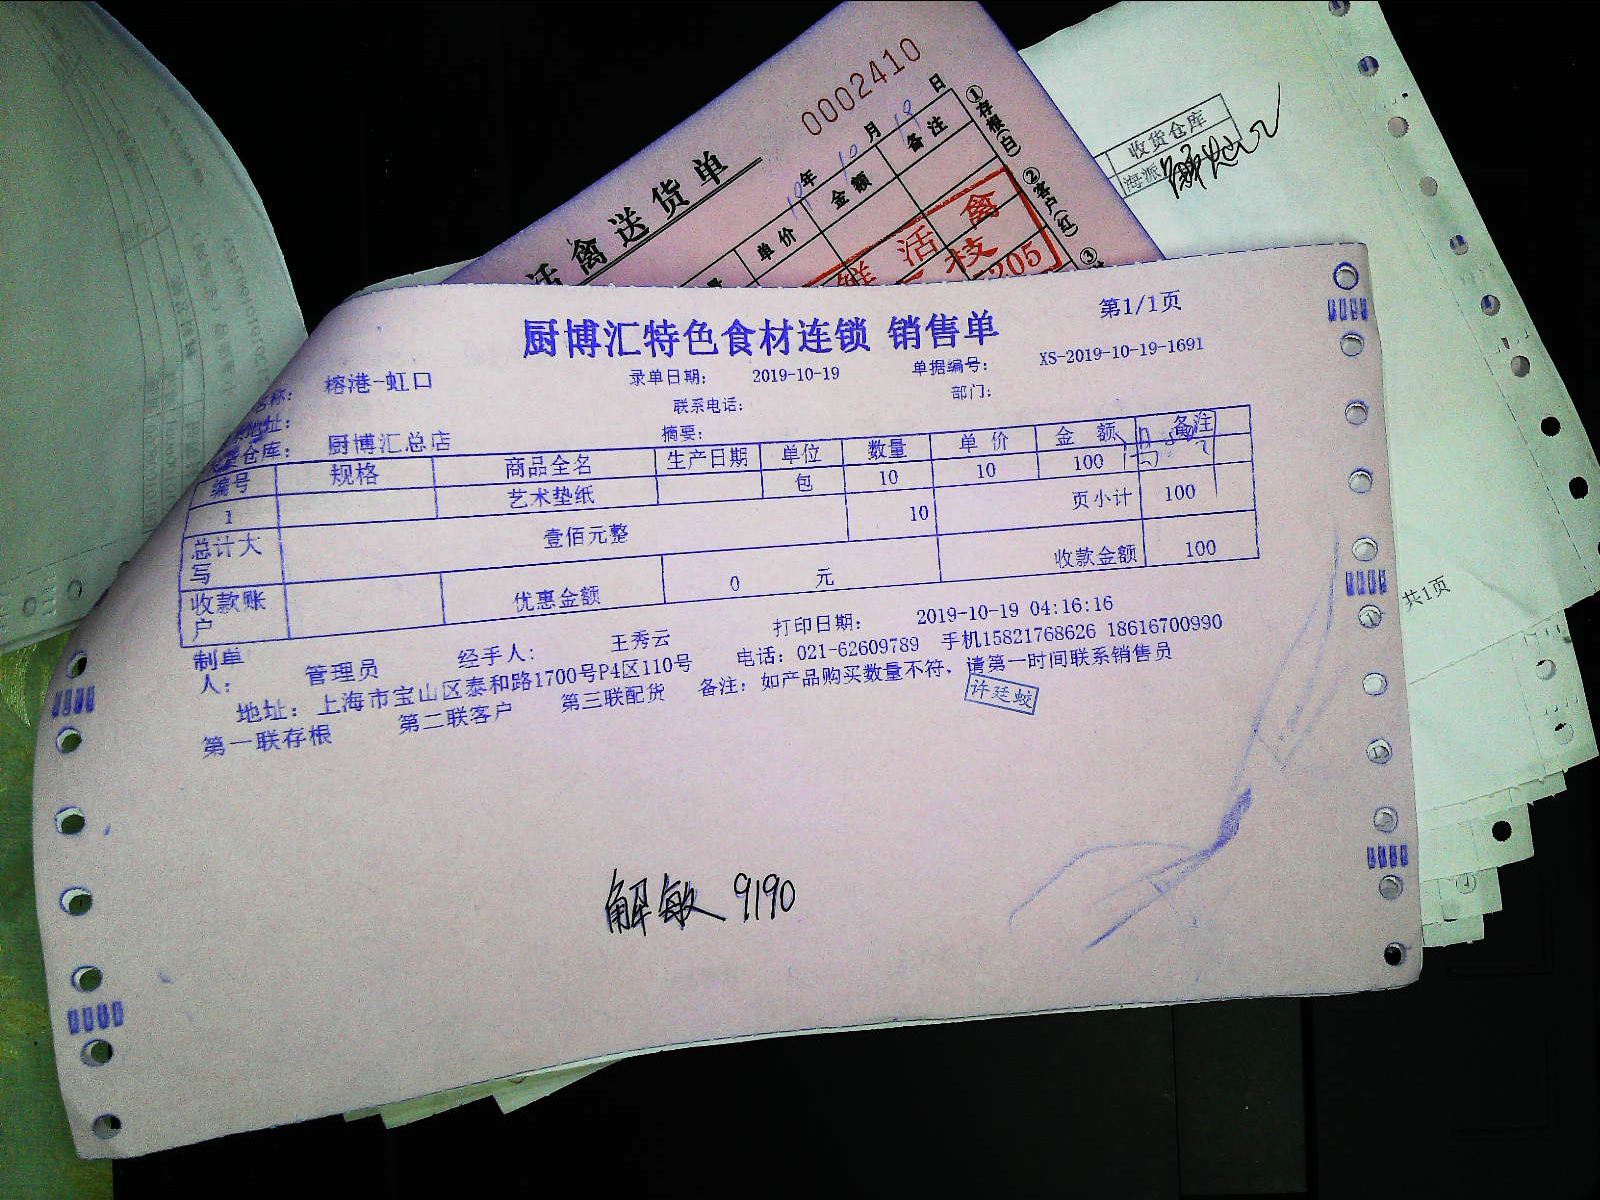 0002410
活禽送货单
年10月19日
单价 金额 备注
①存根(白) ②客户(红) ③
鲜活禽
技
205
收货仓库
海派
共1页
厨博汇特色食材连锁 销售单 第1/1页
名称: 榕港-虹口 录单日期: 2019-10-19 单据编号: XS-2019-10-19-1691
地址: 联系电话: 部门:
仓库: 厨博汇总店 摘要:
编号 规格 商品全名 生产日期 单位 数量 单价 金额 备注
1 艺术垫纸 包 10 10 100
总计大写 壹佰元整 10 页小计 100
收款账户 优惠金额 0 元 收款金额 100
制单人: 管理员 经手人: 王秀云 打印日期: 2019-10-19 04:16:16
地址: 上海市宝山区泰和路1700号P4区110号 电话: 021-62609789 手机15821768626 18616700990
第一联存根 第二联客户 第三联配货 备注: 如产品购买数量不符,请第一时间联系销售员
许廷蛟
解敏 9190